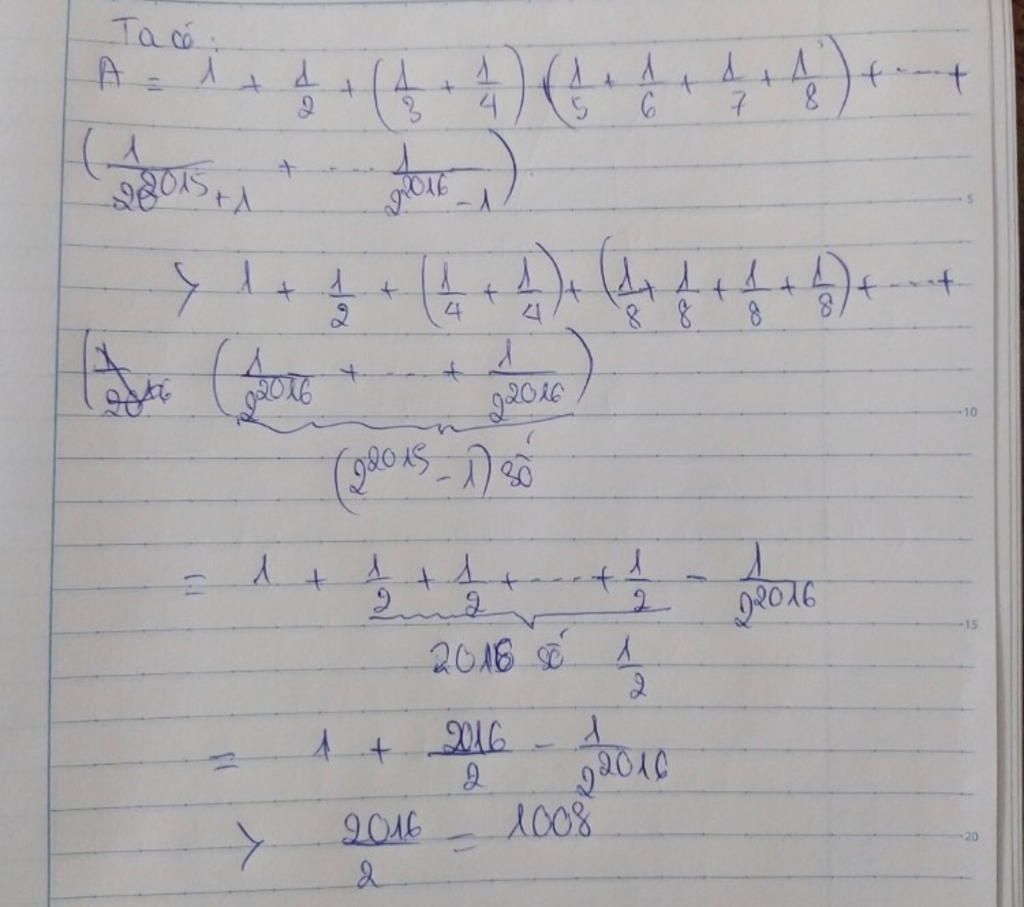 Ta có:
A = 1 + 1/2 + (1/3 + 1/4) + (1/5 + 1/6 + 1/7 + 1/8) + ---- +
(1/(2^2015 + 1) + --- 1/(2^2016 - 1))
> 1 + 1/2 + (1/4 + 1/4) + (1/8 + 1/8 + 1/8 + 1/8) + ---- +
(1/2^2016 + --- + 1/2^2016)
(2^2015 - 1) số
= 1 + 1/2 + 1/2 + ---- + 1/2 - 1/2^2016
2016 số 1/2
= 1 + 2016/2 - 1/2^2016
> 2016/2 = 1008
5
10
15
20